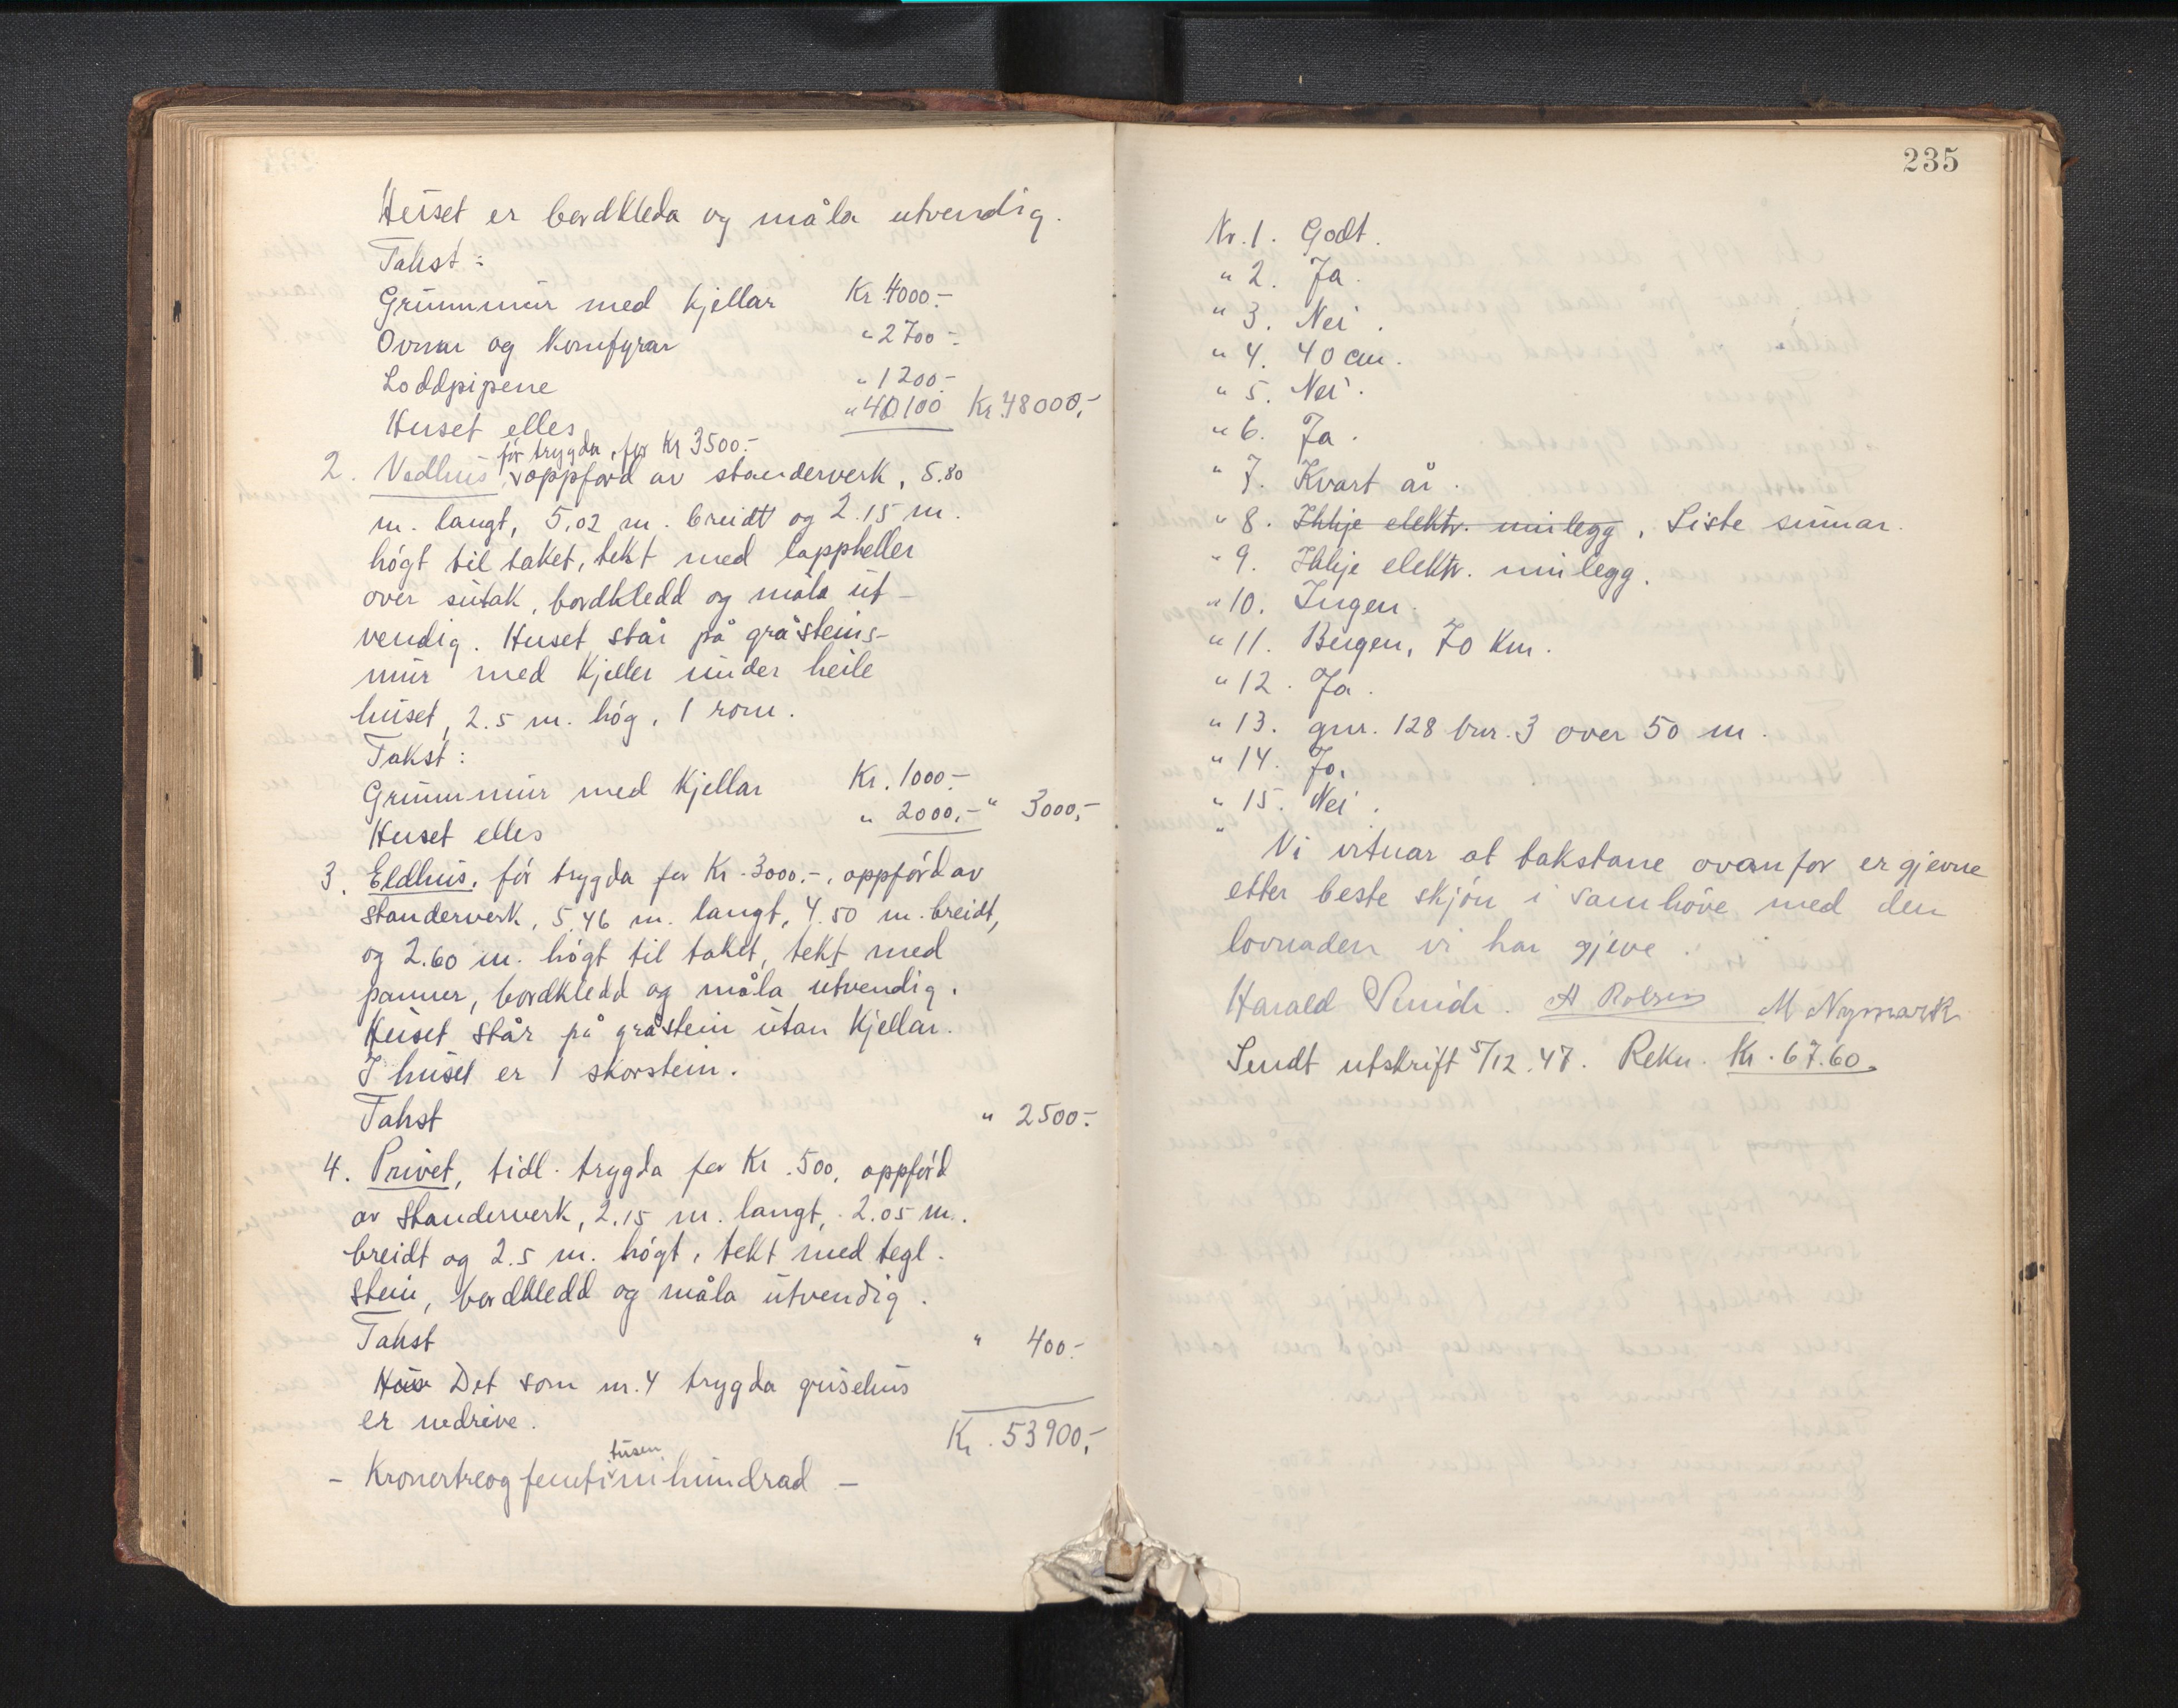 Huset er bordkleda og måla utvendig.
Takst:
Grunnmur med kjellar Kr. 4000.-
Ovnar og Komfyrar " 2700.-
Loddpipene " 1200.-
Huset elles " 40100 Kr. 48000,-
før trygda, for Kr 3500.-
2. Vedhus, oppförd av standerverk, 5.80
m. langt, 5,02 m. breidt og 2.15 m.
högt til taket, tekt med lappheller
over sutak, bordkledd og måla ut-
vendig. Huset står på gråsteins-
mur med kjeller under heile
huset, 2.5 m. hög, 1 rom.
Takst:
Grunnmur med kjellar Kr. 1000.-
Huset elles " 2000,- " 3000,-
3. Eldhus, för trygda for Kr. 3000.-, oppförd av
standerverk, 5,46 m. langt, 4.50 m. breidt,
og 2.60 m. högt til taket, tekt med
panner, bordkledd og måla utvendig.
Huset står på gråstein utan kjellar.
I huset er 1 skorstein.
Takst " 2500.-
4. Privet, tidl. trygda for Kr. 500, oppförd
av standerverk, 2.15 m. langt, 2.05 m.
breidt og 2.5 m. högt, tekt med tegl-
stein, bordkledd og måla utvendig.
Takst " 400.-
Hus Det som nr. 4 trygda grisehus
er nedrive.
Kr. 53900,-
tusen
- Kronertreogfemti nihundrad -
235
Nr. 1. Godt.
" 2. Ja.
" 3. Nei.
" 4. 40 cm.
" 5. Nei.
" 6. Ja.
" 7. Kvart år.
" 8. Ikkje elektr. innlegg, Siste sumar.
" 9. Ikkje elektr. innlegg.
" 10. Ingen.
" 11. Bergen, 70 Km.
" 12. Ja.
" 13. gnr. 128 bnr. 3 over 50 m.
" 14. Jo.
" 15. Nei.
"
Vi vitnar at takstane ovanfor er gjevne
etter beste skjön i samhöve med den
lovnaden vi har gjeve.
Harald A M Nymark
Sendt utskrift 5/12.47. Rekn. Kr. 67.60.